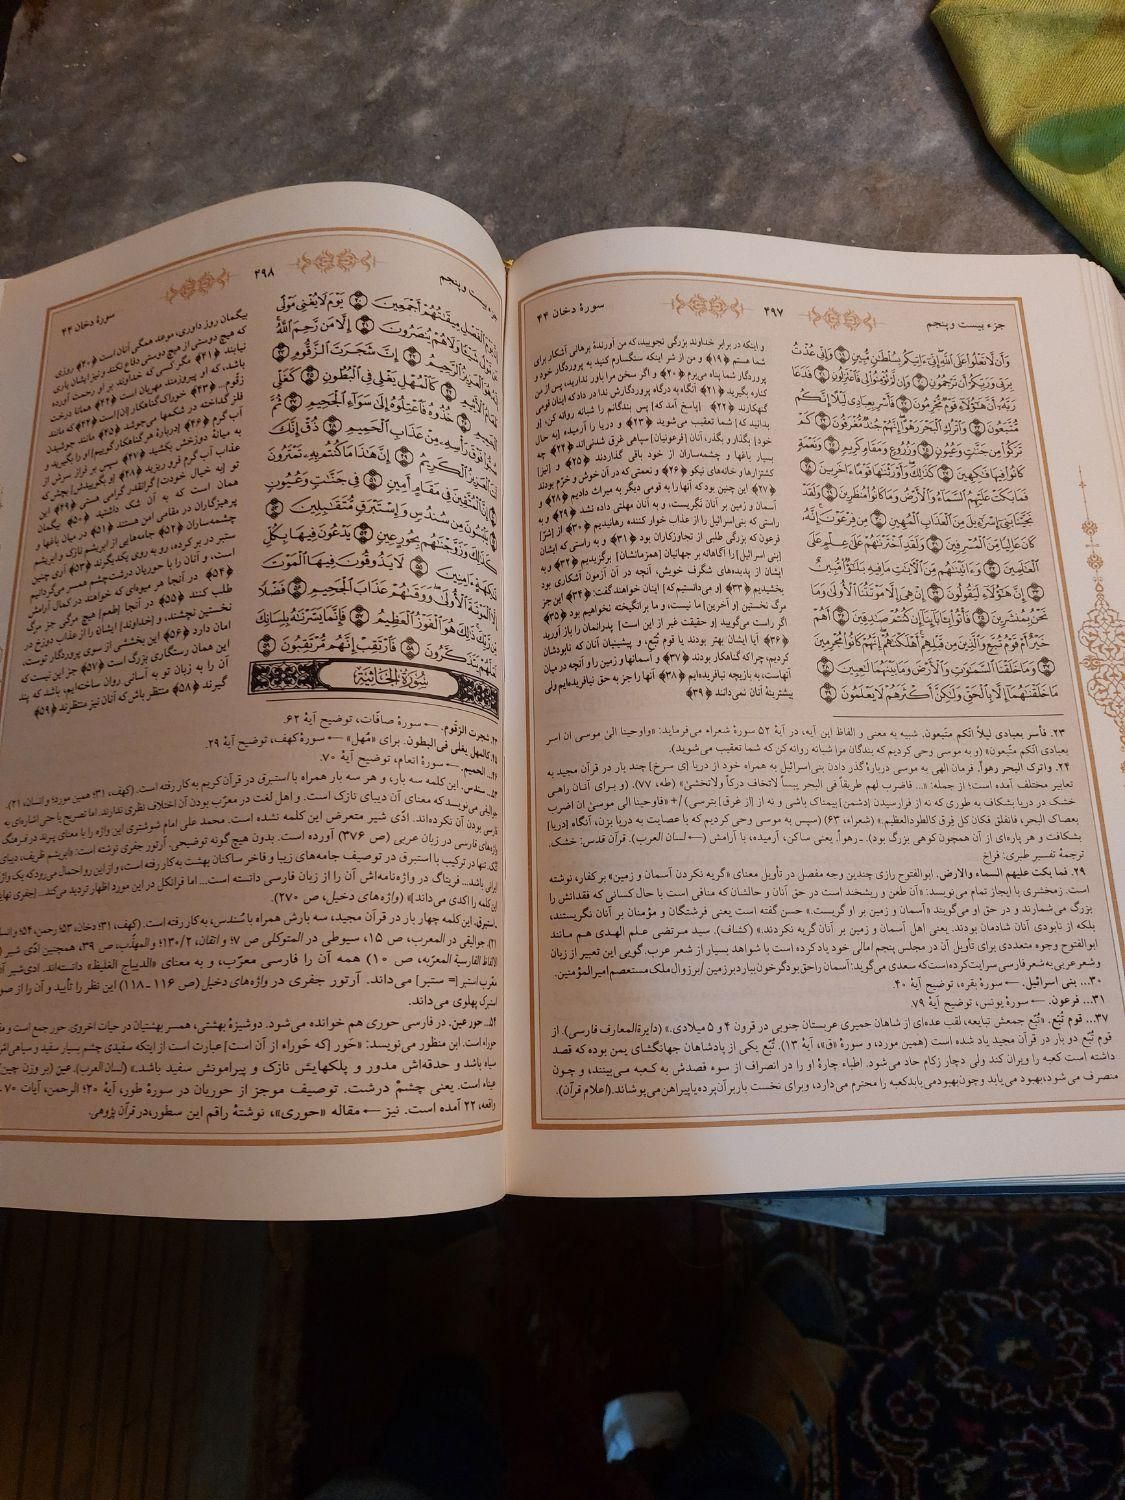 جزء بیست و پنجم
۴۹۷
سورهٔ دخان ۴۴
وَأَن لَّا تَعْلُوا عَلَى اللَّهِ إِنِّي آتِيكُم بِسُلْطَانٍ مُّبِينٍ ﴿١٩﴾ وَإِنِّي عُذْتُ
بِرَبِّي وَرَبِّكُمْ أَن تَرْجُمُونِ ﴿٢٠﴾ وَإِن لَّمْ تُؤْمِنُوا لِي فَاعْتَزِلُونِ ﴿٢١﴾ فَدَعَا
رَبَّهُ أَنَّ هَٰؤُلَاءِ قَوْمٌ مُّجْرِمُونَ ﴿٢٢﴾ فَأَسْرِ بِعِبَادِي لَيْلًا إِنَّكُم
مُّتَّبَعُونَ ﴿٢٣﴾ وَاتْرُكِ الْبَحْرَ رَهْوًا إِنَّهُمْ جُندٌ مُّغْرَقُونَ ﴿٢٤﴾ كَمْ
تَرَكُوا مِن جَنَّاتٍ وَعُيُونٍ ﴿٢٥﴾ وَزُرُوعٍ وَمَقَامٍ كَرِيمٍ ﴿٢٦﴾ وَنَعْمَةٍ
كَانُوا فِيهَا فَاكِهِينَ ﴿٢٧﴾ كَذَٰلِكَ وَأَوْرَثْنَاهَا قَوْمًا آخَرِينَ ﴿٢٨﴾
فَمَا بَكَتْ عَلَيْهِمُ السَّمَاءُ وَالْأَرْضُ وَمَا كَانُوا مُنظَرِينَ ﴿٢٩﴾ وَلَقَدْ
نَجَّيْنَا بَنِي إِسْرَائِيلَ مِنَ الْعَذَابِ الْمُهِينِ ﴿٣٠﴾ مِن فِرْعَوْنَ إِنَّهُ
كَانَ عَالِيًا مِّنَ الْمُسْرِفِينَ ﴿٣١﴾ وَلَقَدِ اخْتَرْنَاهُمْ عَلَىٰ عِلْمٍ عَلَى
الْعَالَمِينَ ﴿٣٢﴾ وَآتَيْنَاهُم مِّنَ الْآيَاتِ مَا فِيهِ بَلَاءٌ مُّبِينٌ
﴿٣٣﴾ إِنَّ هَٰؤُلَاءِ لَيَقُولُونَ ﴿٣٤﴾ إِنْ هِيَ إِلَّا مَوْتَتُنَا الْأُولَىٰ وَمَا
نَحْنُ بِمُنشَرِينَ ﴿٣٥﴾ فَأْتُوا بِآبَائِنَا إِن كُنتُمْ صَادِقِينَ ﴿٣٦﴾ أَهُمْ
خَيْرٌ أَمْ قَوْمُ تُبَّعٍ وَالَّذِينَ مِن قَبْلِهِمْ أَهْلَكْنَاهُمْ إِنَّهُمْ كَانُوا مُجْرِمِينَ
﴿٣٧﴾ وَمَا خَلَقْنَا السَّمَاوَاتِ وَالْأَرْضَ وَمَا بَيْنَهُمَا لَاعِبِينَ ﴿٣٨﴾
مَا خَلَقْنَاهُمَا إِلَّا بِالْحَقِّ وَلَٰكِنَّ أَكْثَرَهُمْ لَا يَعْلَمُونَ ﴿٣٩﴾
و اینکه در برابر خداوند بزرگی نجویید، که من آورندهٔ برهانی آشکار برای
شما هستم ﴿۱۹﴾ و من از شر اینکه سنگسارم کنید به پروردگار خود و
پروردگار شما پناه می‌برم ﴿۲۰﴾ و اگر سخن مرا باور ندارید، پس از من
کناره بگیرید ﴿۲۱﴾ آنگاه به درگاه پروردگارش ندا در داد که اینان قومی
گنهکارند ﴿۲۲﴾ [پاسخ آمد که] پس بندگانم را شبانه روانه کن، [و
بدانید که] شما تعقیب می‌شوید ﴿۲۳﴾ و دریا را آرمیده [به حال
خود] بگذار و بگذر، آنان [فرعونیان] سپاهی غرق شدنی‌اند ﴿۲۴﴾ چه
بسیار باغها و چشمه‌ساران از خود باقی گذاردند ﴿۲۵﴾ و [نیز]
کشتزارها و خانه‌های نیکو ﴿۲۶﴾ و نعمتی که در آن خوش و خرّم بودند
﴿۲۷﴾ این چنین بود که آنها را به قومی دیگر به میراث دادیم ﴿۲۸﴾
آسمان و زمین بر آنان نگریست، و به آنان مهلتی داده نشد ﴿۲۹﴾ و به
راستی که بنی‌اسرائیل را از عذاب خوار کننده رهانیدیم ﴿۳۰﴾ از [شرّ]
فرعون که بزرگی طلبی از تجاوزکاران بود ﴿۳۱﴾ و به راستی که ایشان
[بنی اسرائیل] را آگاهانه بر جهانیان [همزمانشان] برگزیدیم ﴿۳۲﴾ و به
ایشان از پدیده‌های شگرف خویش، آنچه در آن آزمون آشکاری بود
بخشیدیم ﴿۳۳﴾ [و می‌دانستیم که] اینان خواهند گفت: ﴿۳۴﴾ این جز
مرگ نخستین [و آخرین] ما نیست، و ما برانگیخته نخواهیم بود ﴿۳۵﴾
اگر راست می‌گویید [و حقیقت غیر از این است] پدرانمان را باز آورید
﴿۳۶﴾ آیا ایشان بهتر بودند یا قوم تُبّع، و پیشینیان آنان که نابودشان
کردیم، چرا که گناهکار بودند ﴿۳۷﴾ و آسمانها و زمین را و آنچه در میان
آنهاست، به بازیچه نیافریده‌ایم ﴿۳۸﴾ آنها را جز به حق نیافریده‌ایم ولی
بیشترینهٔ آنان نمی‌دانند ﴿۳۹﴾
۲۳. فأسر بعبادی لیلاً انّکم متّبعون. شبیه به معنی و الفاظ این آیه، در آیهٔ ۵۲ سورهٔ شعراء می‌فرماید: «واوحینا الیٰ موسیٰ ان اسر
بعبادی انّکم متّبعون» (و به موسی وحی کردیم که بندگان مرا شبانه روانه کن که شما تعقیب می‌شوید).
۲۴. واترک البحر رهواً. فرمان الهی به موسی دربارهٔ گذار دادن بنی‌اسرائیل به همراه خود از دریا [ی سرخ] چند بار در قرآن مجید به
تعابیر مختلف آمده است؛ از جمله: «... فاضرب لهم طریقاً فی البحر یبساً لاتخاف درکاً ولاتخشیٰ» (طه، ۷۷). (و برای آنان راهی
خشک در دریا بشکاف به طوری که نه از فرارسیدن [دشمن] بیمناک باشی و نه از [از غرق] بترسی) /+ «فاوحینا الی موسیٰ ان اضرب
بعصاک البحر، فانفلق فکان کل فرق کالطودالعظیم.» (شعراء، ۶۳) (سپس به موسی وحی کردیم که با عصایت به دریا بزن، آنگاه [دریا]
بشکافت و هر پاره‌ای از آن همچون کوهی بزرگ بود). ـ رهواً. یعنی ساکن، آرمیده، با آرامش (← لسان العرب). قرآن قدس: خشک.
ترجمهٔ تفسیر طبری: فراخ
۲۹. فما بکت علیهم السماء والارض. ابوالفتوح رازی چندین وجه مفصل در تأویل معنای «گریه نکردن آسمان و زمین» بر کفار، نوشته
است. زمخشری با ایجاز تمام می‌نویسد: «آن طعن و ریشخند است در حق آنان و حالشان که منافی است با حال کسانی که فقدانش را
بزرگ می‌شمارند و در حق او می‌گویند «آسمان و زمین بر او گریست.» حسن گفته است یعنی فرشتگان و مؤمنان بر آنان نگریستند،
بلکه از نابودی آنان شادمان بودند. یعنی اهل آسمان و زمین بر آنان گریه نکردند.» (کشاف). سید مرتضی علم الهدی هم مانند
ابوالفتوح وجوه متعددی برای تأویل آن در مجلس پنجم امالی خود یاد کرده است با شواهد بسیار از شعر عرب. گویی این تعبیر از زبان
وشعرعربی به شعر فارسی سرایت کرده است که سعدی می‌گوید: آسمان راحق بودگرخون ببارد بر زمین / بر زوال ملک مستعصم امیرالمؤمنین.
۳۰... بنی اسرائیل. ← سورهٔ بقره، توضیح آیهٔ ۴۰.
۳۱... فرعون. ← سورهٔ یونس، توضیح آیهٔ ۷۹.
۳۷... قوم تُبّع. «تُبّع جمعش تبابعه، لقب عده‌ای از شاهان حمیری عربستان جنوبی در قرون ۴ و ۵ میلادی.» (دایرةالمعارف فارسی). از
قوم تُبّع دو بار در قرآن مجید یاد شده است (همین مورد، و سورهٔ «ق»، آیهٔ ۱۳). تُبّع یکی از پادشاهان جهانگشای یمن بوده که قصد
داشته است کعبه را ویران کند ولی دچار زکام حاد می‌شود. اطباء چارهٔ او را در انصراف از سوء قصدش به کعبه می‌بینند، و چون
منصرف می‌شود، بهبود می‌یابد و چون بهبود می‌یابد کعبه را محترم می‌دارد، و برای نخست بار بر آن پرده یا پیراهن می‌پوشاند. (اعلام قرآن).
جزء بیست و پنجم
۴۹۸
سورهٔ دخان ۴۴
الْفَصْلِ مِيقَاتُهُمْ أَجْمَعِينَ ﴿٤٠﴾ يَوْمَ لَا يُغْنِي مَوْلًى
مَوْلًى شَيْئًا وَلَا هُمْ يُنصَرُونَ ﴿٤١﴾ إِلَّا مَن رَّحِمَ اللَّهُ
هُوَ الْعَزِيزُ الرَّحِيمُ ﴿٤٢﴾ إِنَّ شَجَرَتَ الزَّقُّومِ ﴿٤٣﴾
طَعَامُ الْأَثِيمِ ﴿٤٤﴾ كَالْمُهْلِ يَغْلِي فِي الْبُطُونِ ﴿٤٥﴾ كَغَلْيِ
الْحَمِيمِ ﴿٤٦﴾ خُذُوهُ فَاعْتِلُوهُ إِلَىٰ سَوَاءِ الْجَحِيمِ ﴿٤٧﴾ ثُمَّ
صُبُّوا فَوْقَ رَأْسِهِ مِنْ عَذَابِ الْحَمِيمِ ﴿٤٨﴾ ذُقْ إِنَّكَ
أَنتَ الْعَزِيزُ الْكَرِيمُ ﴿٤٩﴾ إِنَّ هَٰذَا مَا كُنتُم بِهِ تَمْتَرُونَ
﴿٥٠﴾ إِنَّ الْمُتَّقِينَ فِي مَقَامٍ أَمِينٍ ﴿٥١﴾ فِي جَنَّاتٍ وَعُيُونٍ
يَلْبَسُونَ مِن سُندُسٍ وَإِسْتَبْرَقٍ مُّتَقَابِلِينَ ﴿٥٣﴾
كَذَٰلِكَ وَزَوَّجْنَاهُم بِحُورٍ عِينٍ ﴿٥٤﴾ يَدْعُونَ فِيهَا بِكُلِّ
فَاكِهَةٍ آمِنِينَ ﴿٥٥﴾ لَا يَذُوقُونَ فِيهَا الْمَوْتَ
إِلَّا الْمَوْتَةَ الْأُولَىٰ وَوَقَاهُمْ عَذَابَ الْجَحِيمِ ﴿٥٦﴾ فَضْلًا
مِّن رَّبِّكَ ذَٰلِكَ هُوَ الْفَوْزُ الْعَظِيمُ ﴿٥٧﴾ فَإِنَّمَا يَسَّرْنَاهُ بِلِسَانِكَ
لَعَلَّهُمْ يَتَذَكَّرُونَ ﴿٥٨﴾ فَارْتَقِبْ إِنَّهُم مُّرْتَقِبُونَ ﴿٥٩﴾
سُورَةُ الْجَاثِيَةِ
بیگمان روز داوری، موعد همگی آنان است ﴿۴۰﴾ روزی
که هیچ دوستی از هیچ دوستی دفاع نکند و نیز ایشان یاری
نیابند ﴿۴۱﴾ مگر کسی که خداوند بر او رحمت آورده
باشد، که او پیروزمند مهربان است ﴿۴۲﴾ همانا درخت
زقّوم... ﴿۴۳﴾ خوراک گناهکار [ان] است ﴿۴۴﴾ که مانند
فلز گداخته در شکمها می‌جوشد ﴿۴۵﴾ مانند جوشیدن
آب گرم ﴿۴۶﴾ [دربارهٔ هر گناهکار گوییم] او را بگیرید و
به میانهٔ دوزخش بکشید ﴿۴۷﴾ سپس بر فراز سرش از
عذاب آب گرم فرو ریزید ﴿۴۸﴾ [و بگوییدش] بچش که
تو [به خیال خودت] گرانقدر گرامی هستی ﴿۴۹﴾ این
همان است که به آن شک داشتید ﴿۵۰﴾ بیگمان
پرهیزگاران در مقامی امن هستند ﴿۵۱﴾ در میان باغها و
چشمه‌ساران ﴿۵۲﴾ جامه‌هایی از ابریشم نازک و ابریشم
ستبر در بر کرده، رو به روی یکدیگرند ﴿۵۳﴾ آری چنین
است، و آنان را با حوریان درشت‌چشم همسر می‌گردانیم
﴿۵۴﴾ در آنجا هر میوه‌ای که خواهند در کمال آرامش
طلب کنند ﴿۵۵﴾ در آنجا [طعم] هیچ مرگی جز مرگ
نخستین نچشند، و [خداوند] ایشان را از عذاب دوزخ در
امان دارد ﴿۵۶﴾ این بخششی از سوی پروردگار توست،
این همان رستگاری بزرگ است ﴿۵۷﴾ جز این نیست که
آن را به زبان تو به آسانی روان ساخته‌ایم، باشد که پند
گیرند ﴿۵۸﴾ منتظر باش که آنان نیز منتظرند ﴿۵۹﴾
شجرت الزقّوم. ← سورهٔ صافّات، توضیح آیهٔ ۶۲.
کالمهل یغلی فی البطون. برای «مُهل» ← سورهٔ کهف، توضیح آیهٔ ۲۹.
الحمیم. ← سورهٔ انعام، توضیح آیهٔ ۷۰.
سندس. این کلمه سه بار، و هر سه بار همراه با استبرق در قرآن کریم به کار رفته است. (کهف، ۳۱؛ همین مورد؛ و انسان، ۲۱).
جوالیقی می‌نویسد که معنای آن دیبای نازک است. و اهل لغت در معرّب بودن آن اختلاف نظری ندارند. اما تصریح یا حتی اشاره‌ای به
فارسی بودن آن نکرده‌اند. ادّی شیر متعرض این کلمه نشده است. محمد علی امام شوشتری این واژه را با معنای پرند در فرهنگ
واژه‌های فارسی در زبان عربی (ص ۳۷۶) آورده است. بدون هیچ گونه توضیحی. آرتور جفری نوشته است: «ابریشم ظریف، دیبای
تنها در ترکیب با استبرق در توصیف جامه‌های زیبا و فاخر ساکنان بهشت به کار رفته است، و از این رو احتمال می‌رود که یک واژهٔ
ایرانی باشد... فریتاگ در واژه‌نامه‌اش آن را از زبان فارسی دانسته است... اما فرانکل در این مورد اظهار تردید می‌کند...
این کلمه را اکدی می‌داند]» (واژه‌های دخیل، ص ۲۷۰).
استبرق. این کلمه چهار بار در قرآن مجید، سه بارش همراه با سُندس، به کار رفته است. (کهف، ۳۱؛ دخان، ۵۳؛ رحمن، ۵۴؛
۲۱). جوالیقی در المعرب، ص ۱۵، سیوطی در المتوکلی ص ۷؛ و اتقان، ۱۳۰/۲؛ و المهذّب، ص ۳۹، همچنین ادّی شیر
الالفاظ الفارسیة المعرّبه، ص ۱۰) همه آن را فارسی معرّب، و به معنای «الدیباج الغلیظ» دانسته‌اند. ادی‌شیر
معرّب استبر [= ستبر] می‌داند. آرتور جفری در واژه‌های دخیل (ص ۱۱۶ ـ ۱۱۸) این نظر را تأیید و آن را از
استبرک پهلوی می‌داند.
حور عین. در فارسی حوری هم خوانده می‌شود. دوشیزهٔ بهشتی، همسر بهشتیان در حیات اخروی. حور جمع است و
حوراء است. ابن منظور می‌نویسد: «حَور [که حَوراء از آن است] عبارت است از اینکه سفیدی چشم بسیار سفید و سیاهی‌اش
سیاه باشد و حدقه‌اش مدور و پلکهایش نازک و پیرامونش سفید باشد.» (لسان العرب). عین (بر وزن چین)
عیناء است. یعنی چشم درشت. توصیف موجز از حوریان در سورهٔ طور، آیهٔ ۲۰؛ الرحمن، آیات ۷۰
واقعه، ۲۲ آمده است. نیز ← مقاله «حوری»، نوشتهٔ راقم این سطور، در قرآن پژوهی.